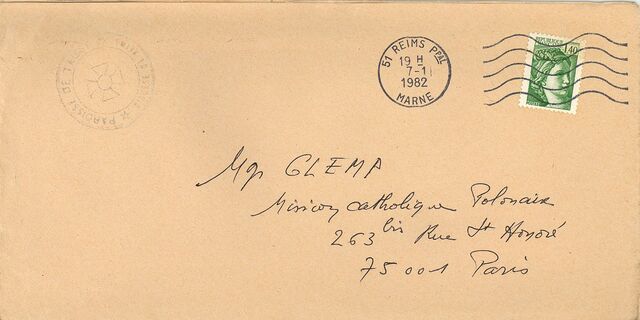 51 REIMS PPAL
19 H
7-1
1982
MARNE
1,40
PAROISSE DE
Mgr GLEMP
Mission catholique Polonaise
263 bis Rue St Honoré
75001 Paris